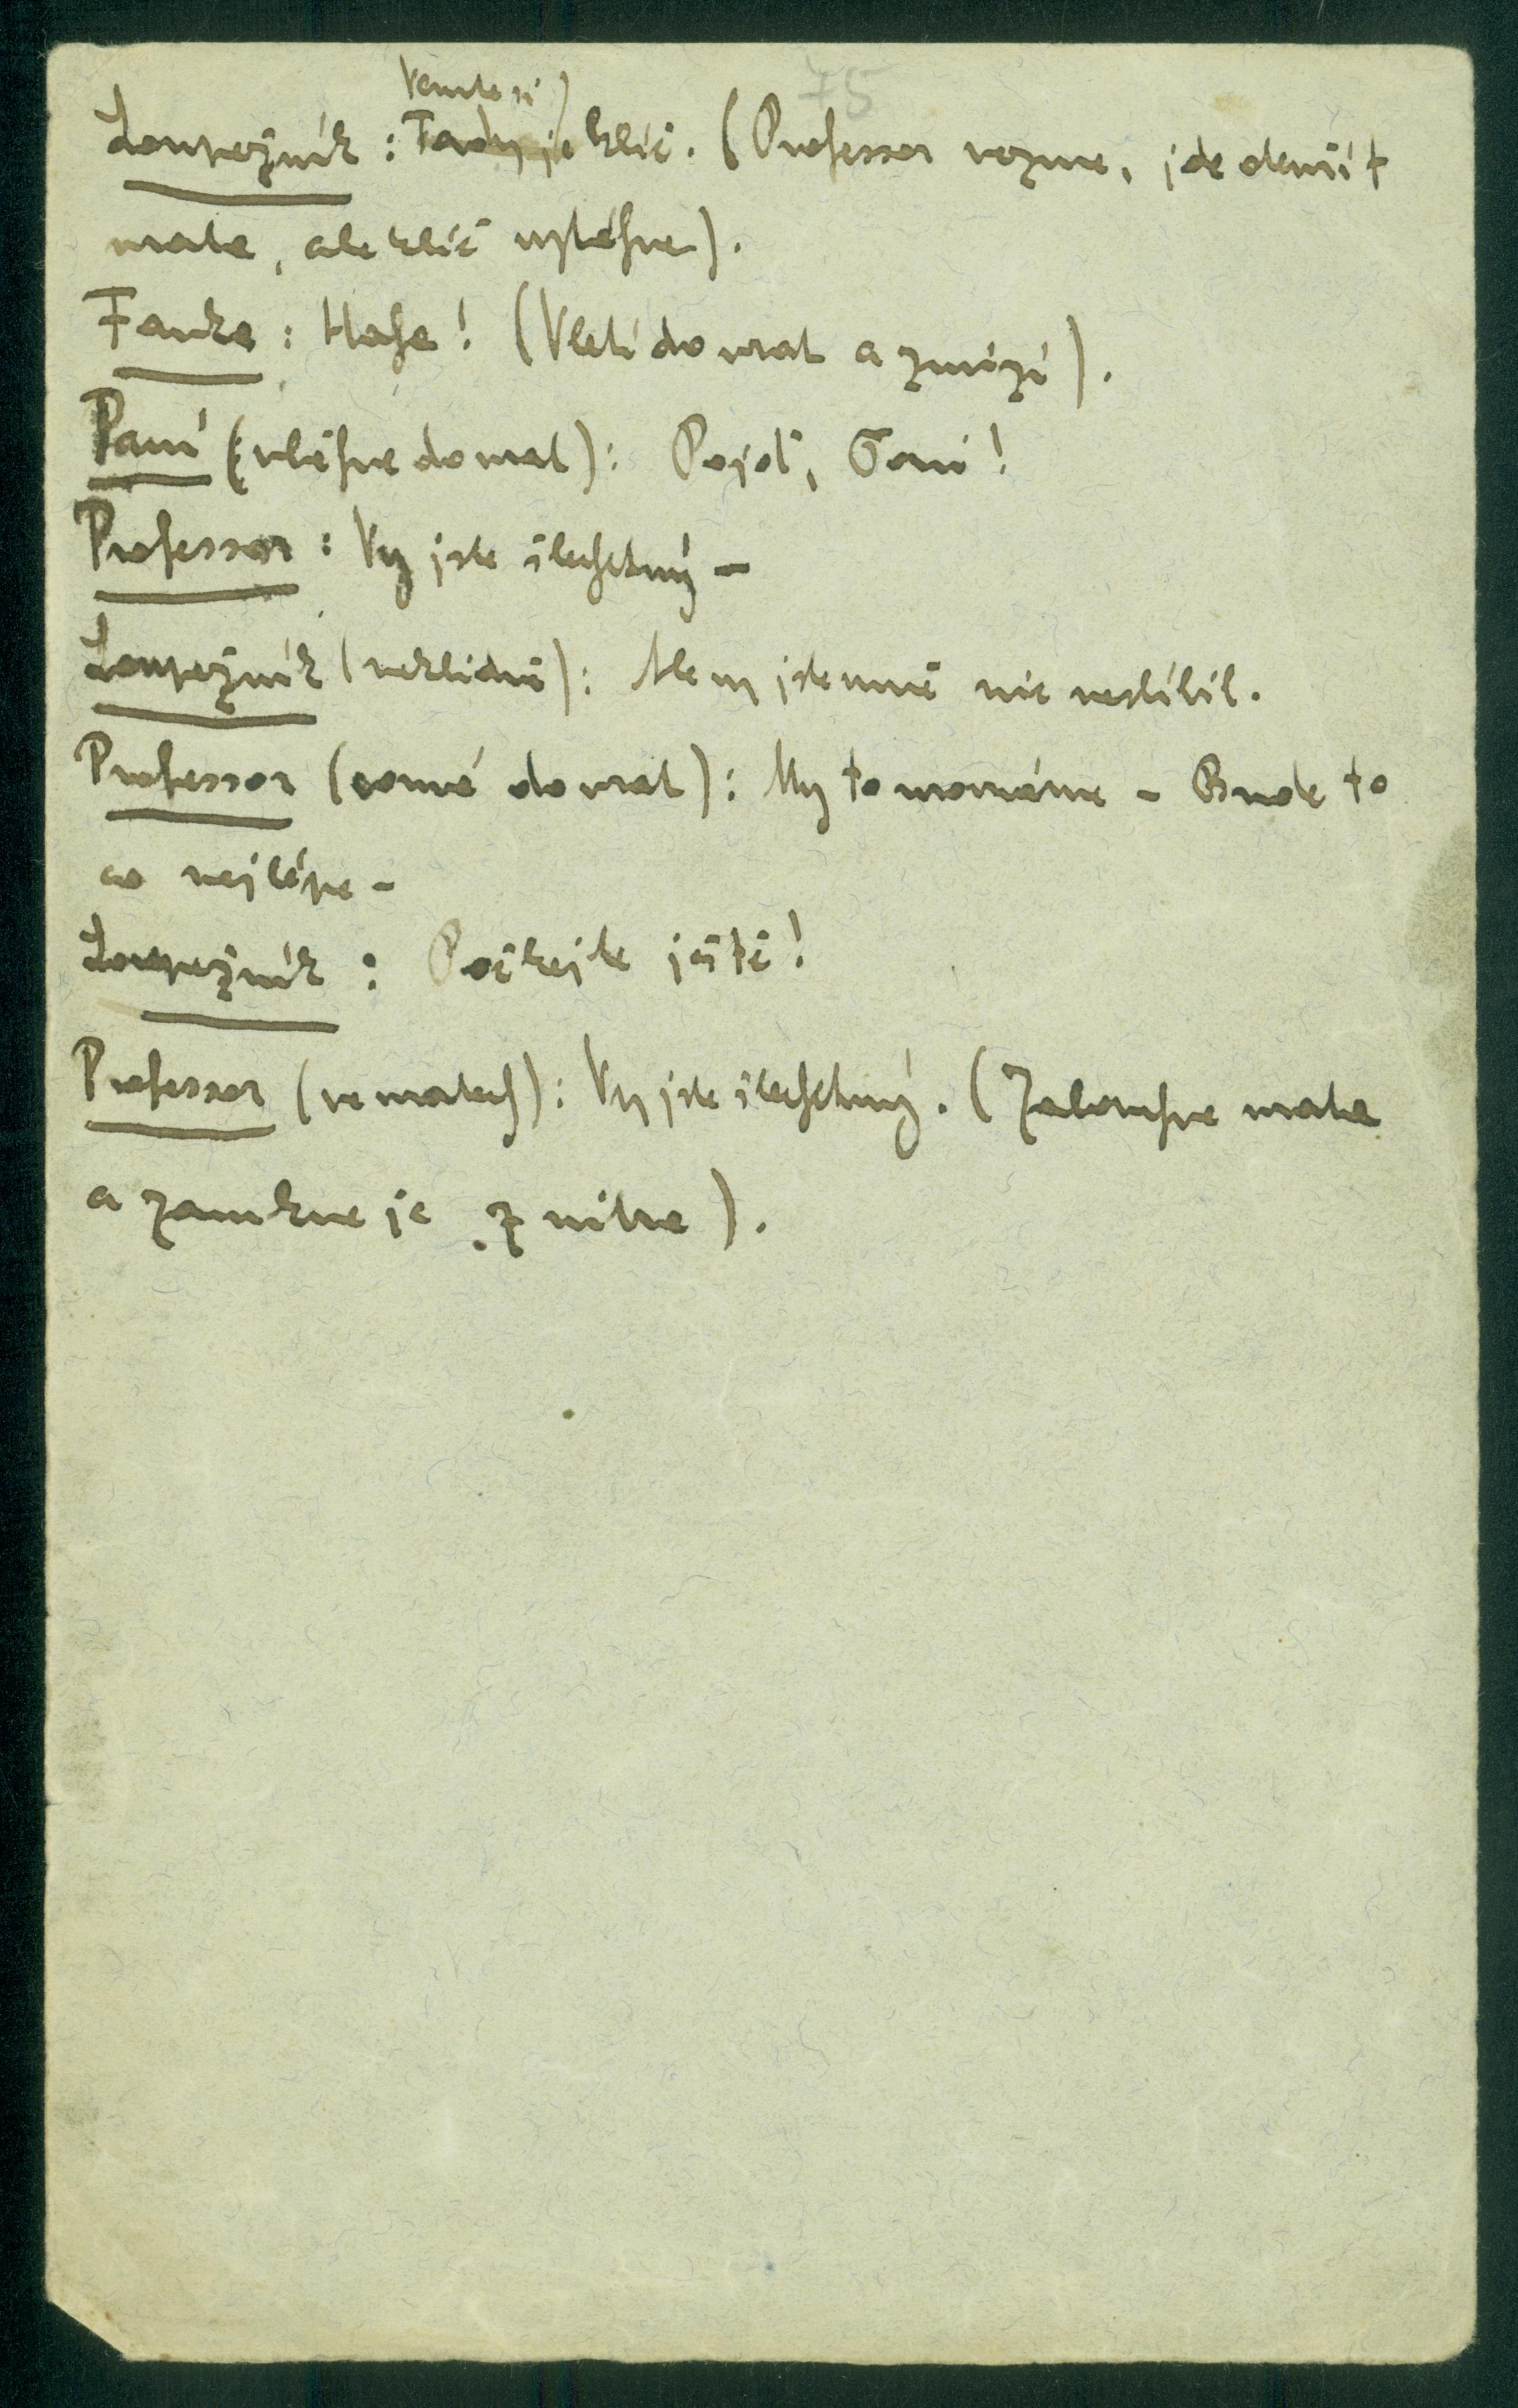 75
Vemte si
Loupežník: Tady je klíč. (Professor vezme, jde otevřít
vrata, ale klíč vytáhne).
Fanka: Haha! (Vletí do vrat a zmizí).
Paní (vběhne do vrat): Pojď, Toni!
Professor: Vy jste šlechetný –
Loupežník (neklidně): Ale vy jste mně nic neslíbil.
Professor (couvá do vrat): My to srovnáme – Bude to
co nejlépe –
Loupežník: Počkejte ještě!
Professor (ve vratech): Vy jste šlechetný. (Zabouchne vrata
a zamkne je z nitra).